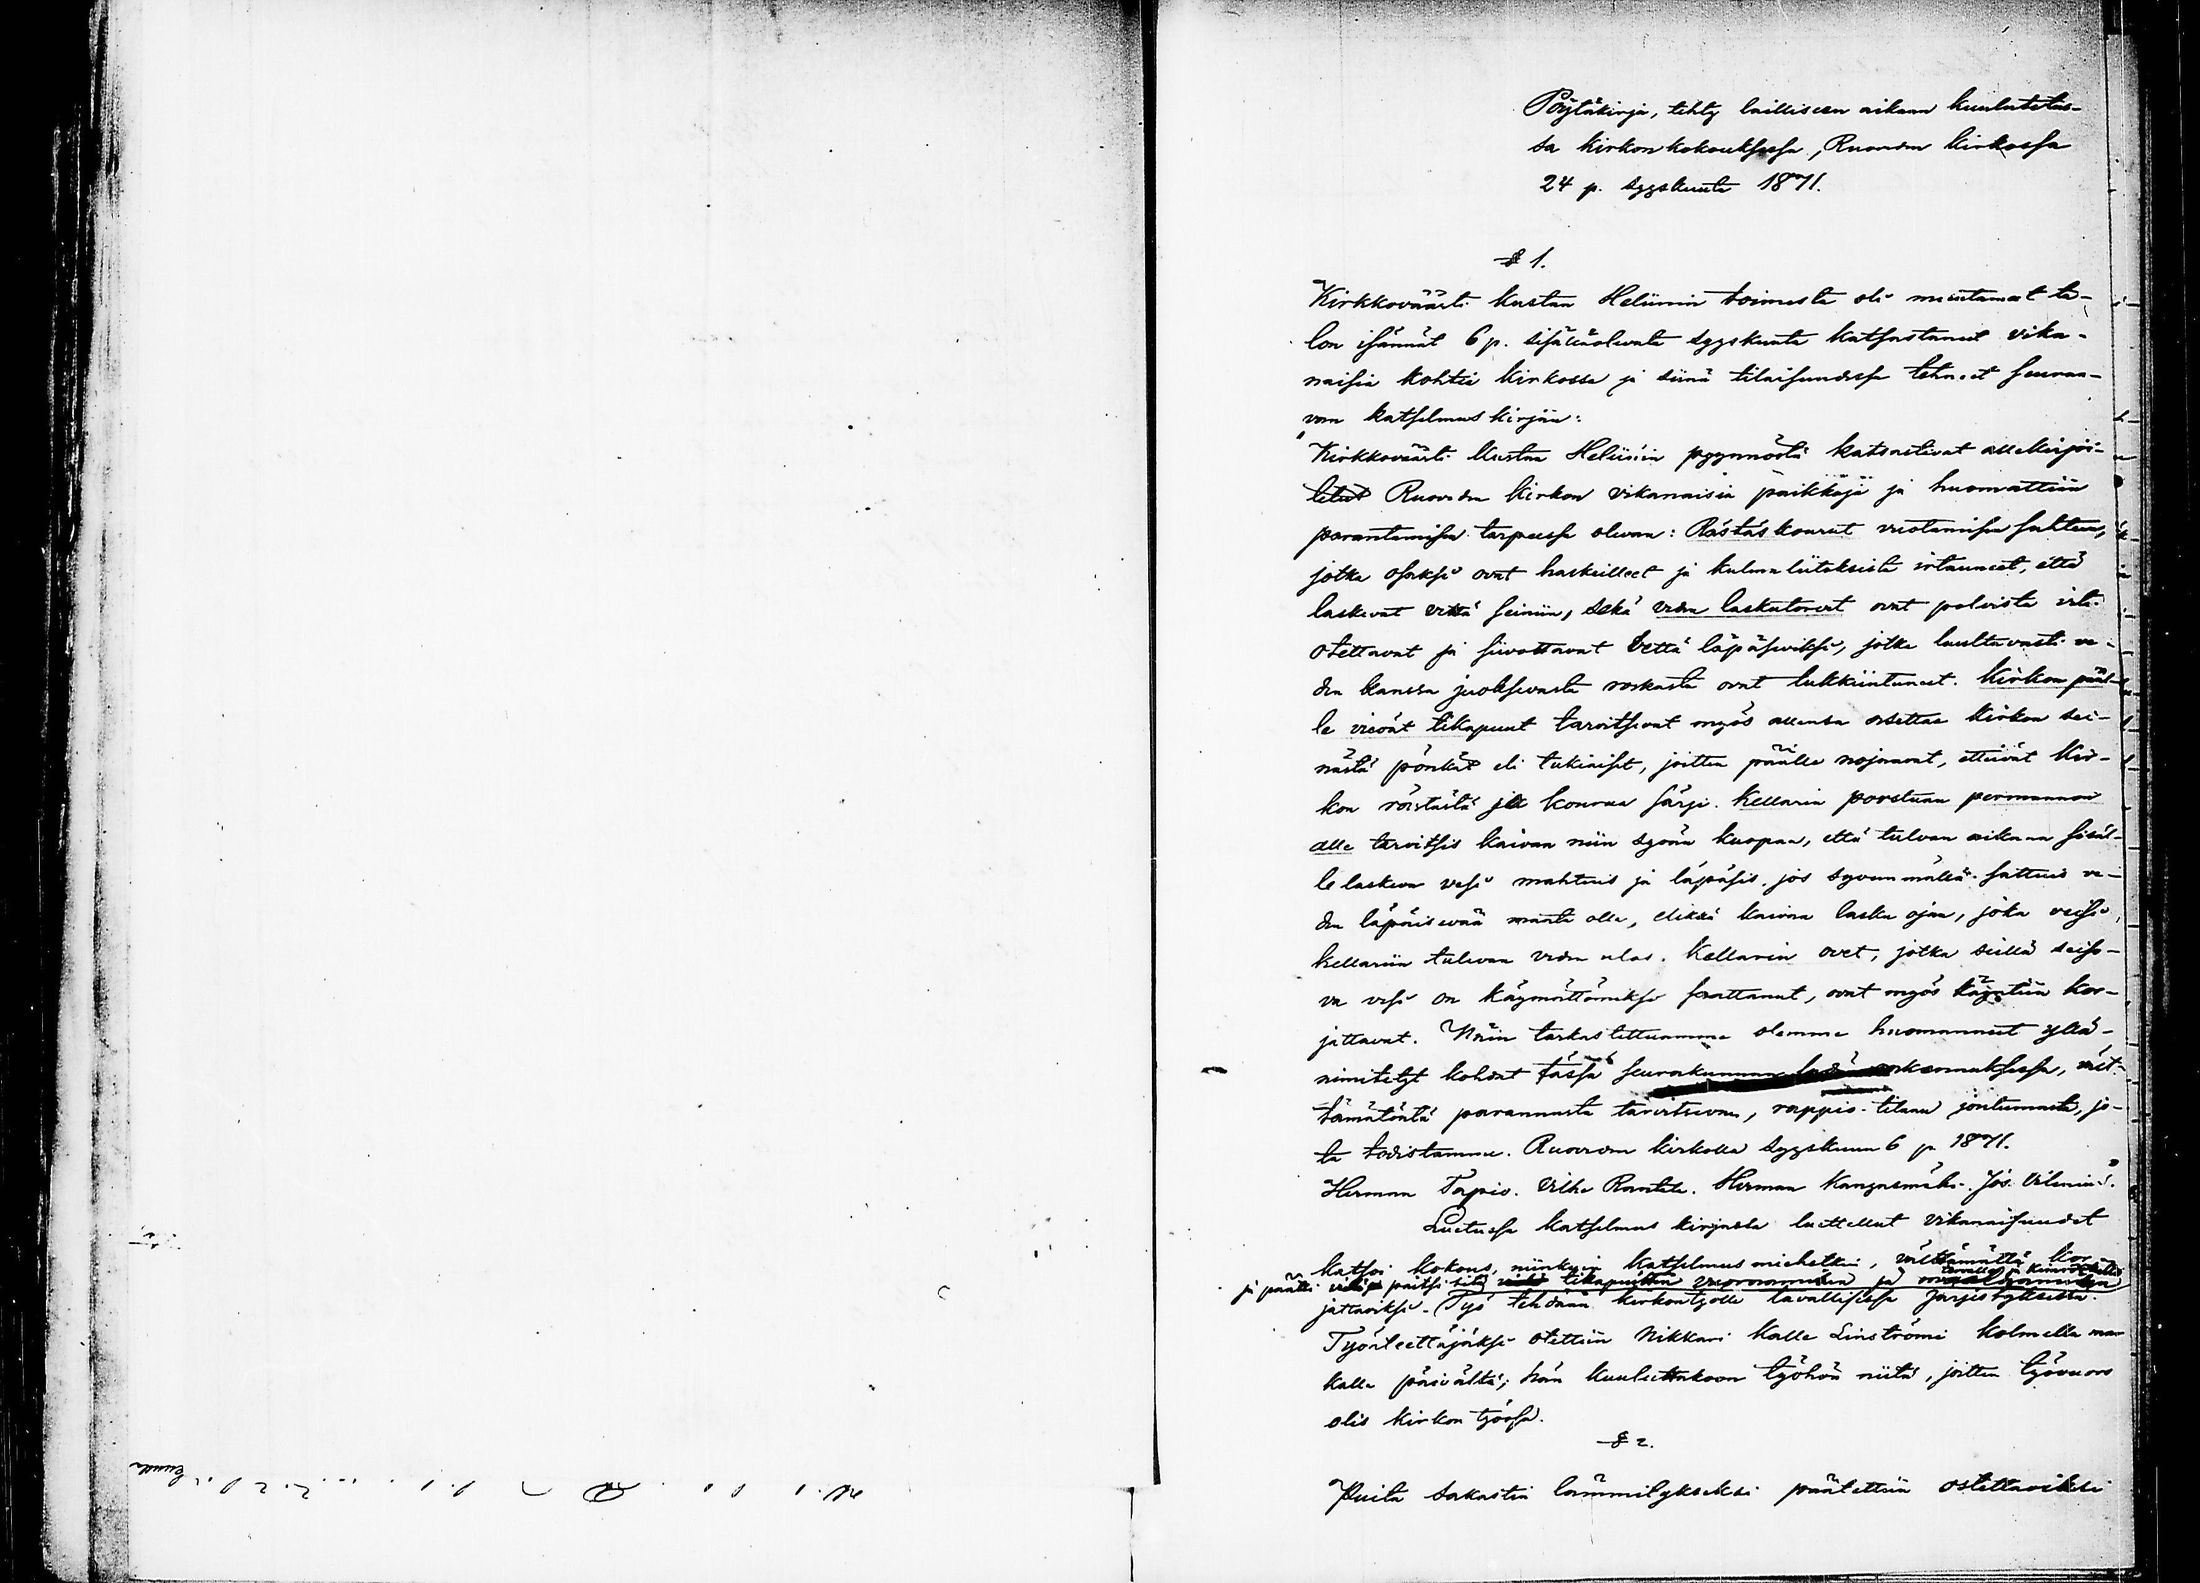 Pöytäkirja, tehty lailliseen aikaan kuulutetus-
sa kirkonkokouksessa, Ruoveden kirkossa
24 p. syyskuuta 1871.
§ 1.
Kirkkoväärti Kustaa Heliinin toimesta oli muutamat ta-
lon isännät 6 p. sisälläolevata syyskuuta katsastaneet vika-
naisia kohtia kirkossa ja siinä tilaisuudessa tehneet seuraa-
van katselmus kirjan:
"Kirkkoväärti Kustaa Heliinin pyynnöstä katsastivat allekirjoi-
tetut Ruoveden kirkon vikanaisia paikkoja ja huomattiin
parantamisen tarpeessa olevan: Rästäskourut vuotamisen suhteen,
jotka osaksi ovat haskeilleet ja kulmaliitoksista irtauneet, että
laskevat vettä seiniin, sekä veden laskutorvet ovat polvista irti
otettavat ja siivottavat vettä läpäseviksi, jotka luultavasti ve-
den kanssa juoksevasta roskasta ovat tukkiintuneet. Kirkon pääl-
le vievät tikapuut tarvitsevat myös allensa asettaa kirkon sei-
nästä pönkät eli tukiaiset, joitten päälle nojaavat, etteivät kir-
kon räistästä ja kourua särje. Kellarin porstuan permannon
alle tarvitsis kaivaa niin syvän kuopan, että tulvan aikana sisäl-
le laskeva vesi mahtuis ja läpäsis, jos syvemmällä sattuis ve-
den läpäisevää maata olla, elikkä kaivaa lasku ojaa, joka veisi
kellariin tulevan veden ulos. Kellarin ovet, jotka siellä seiso-
va vesi on käymättömiksi saattanut, ovat myös käyntiin kor-
jattavat. Näin tarkastettuamme olemme huomanneet yllä-
nimitetyt kohdat tässä seurakunnan rakennuksessa, vält-
tämätöntä parannusta tarvitsevan, rappio-tilaan joutumasta, jo-
ta todistamme. Ruoveden kirkolla syyskuun 6 p 1871.
Herman Tapio. Vilhe Rantala. Herman Kangasmäki. Jos. Vilenius."
Luetussa katselmus kirjassa luetellut vikanaisuudet
katsoi kokous, niinkuin katselmus miehetkin, välttämättä kor-
ja päätti paitsi sitä tikapuitten
jattaviksi. Työ tehdään kirkontyölle tavallisessa järjestyksessä.
Työnteettäjäksi otettiin Nikkari Kalle Linströmi kolmella mar
kalla päivältä; hän kuuluttakoon työhön niitä, joitten työvuoro
olis kirkon työssä.
§ 2.
Puita sakastin lämmitykseksi päätettiin ostettaviksi